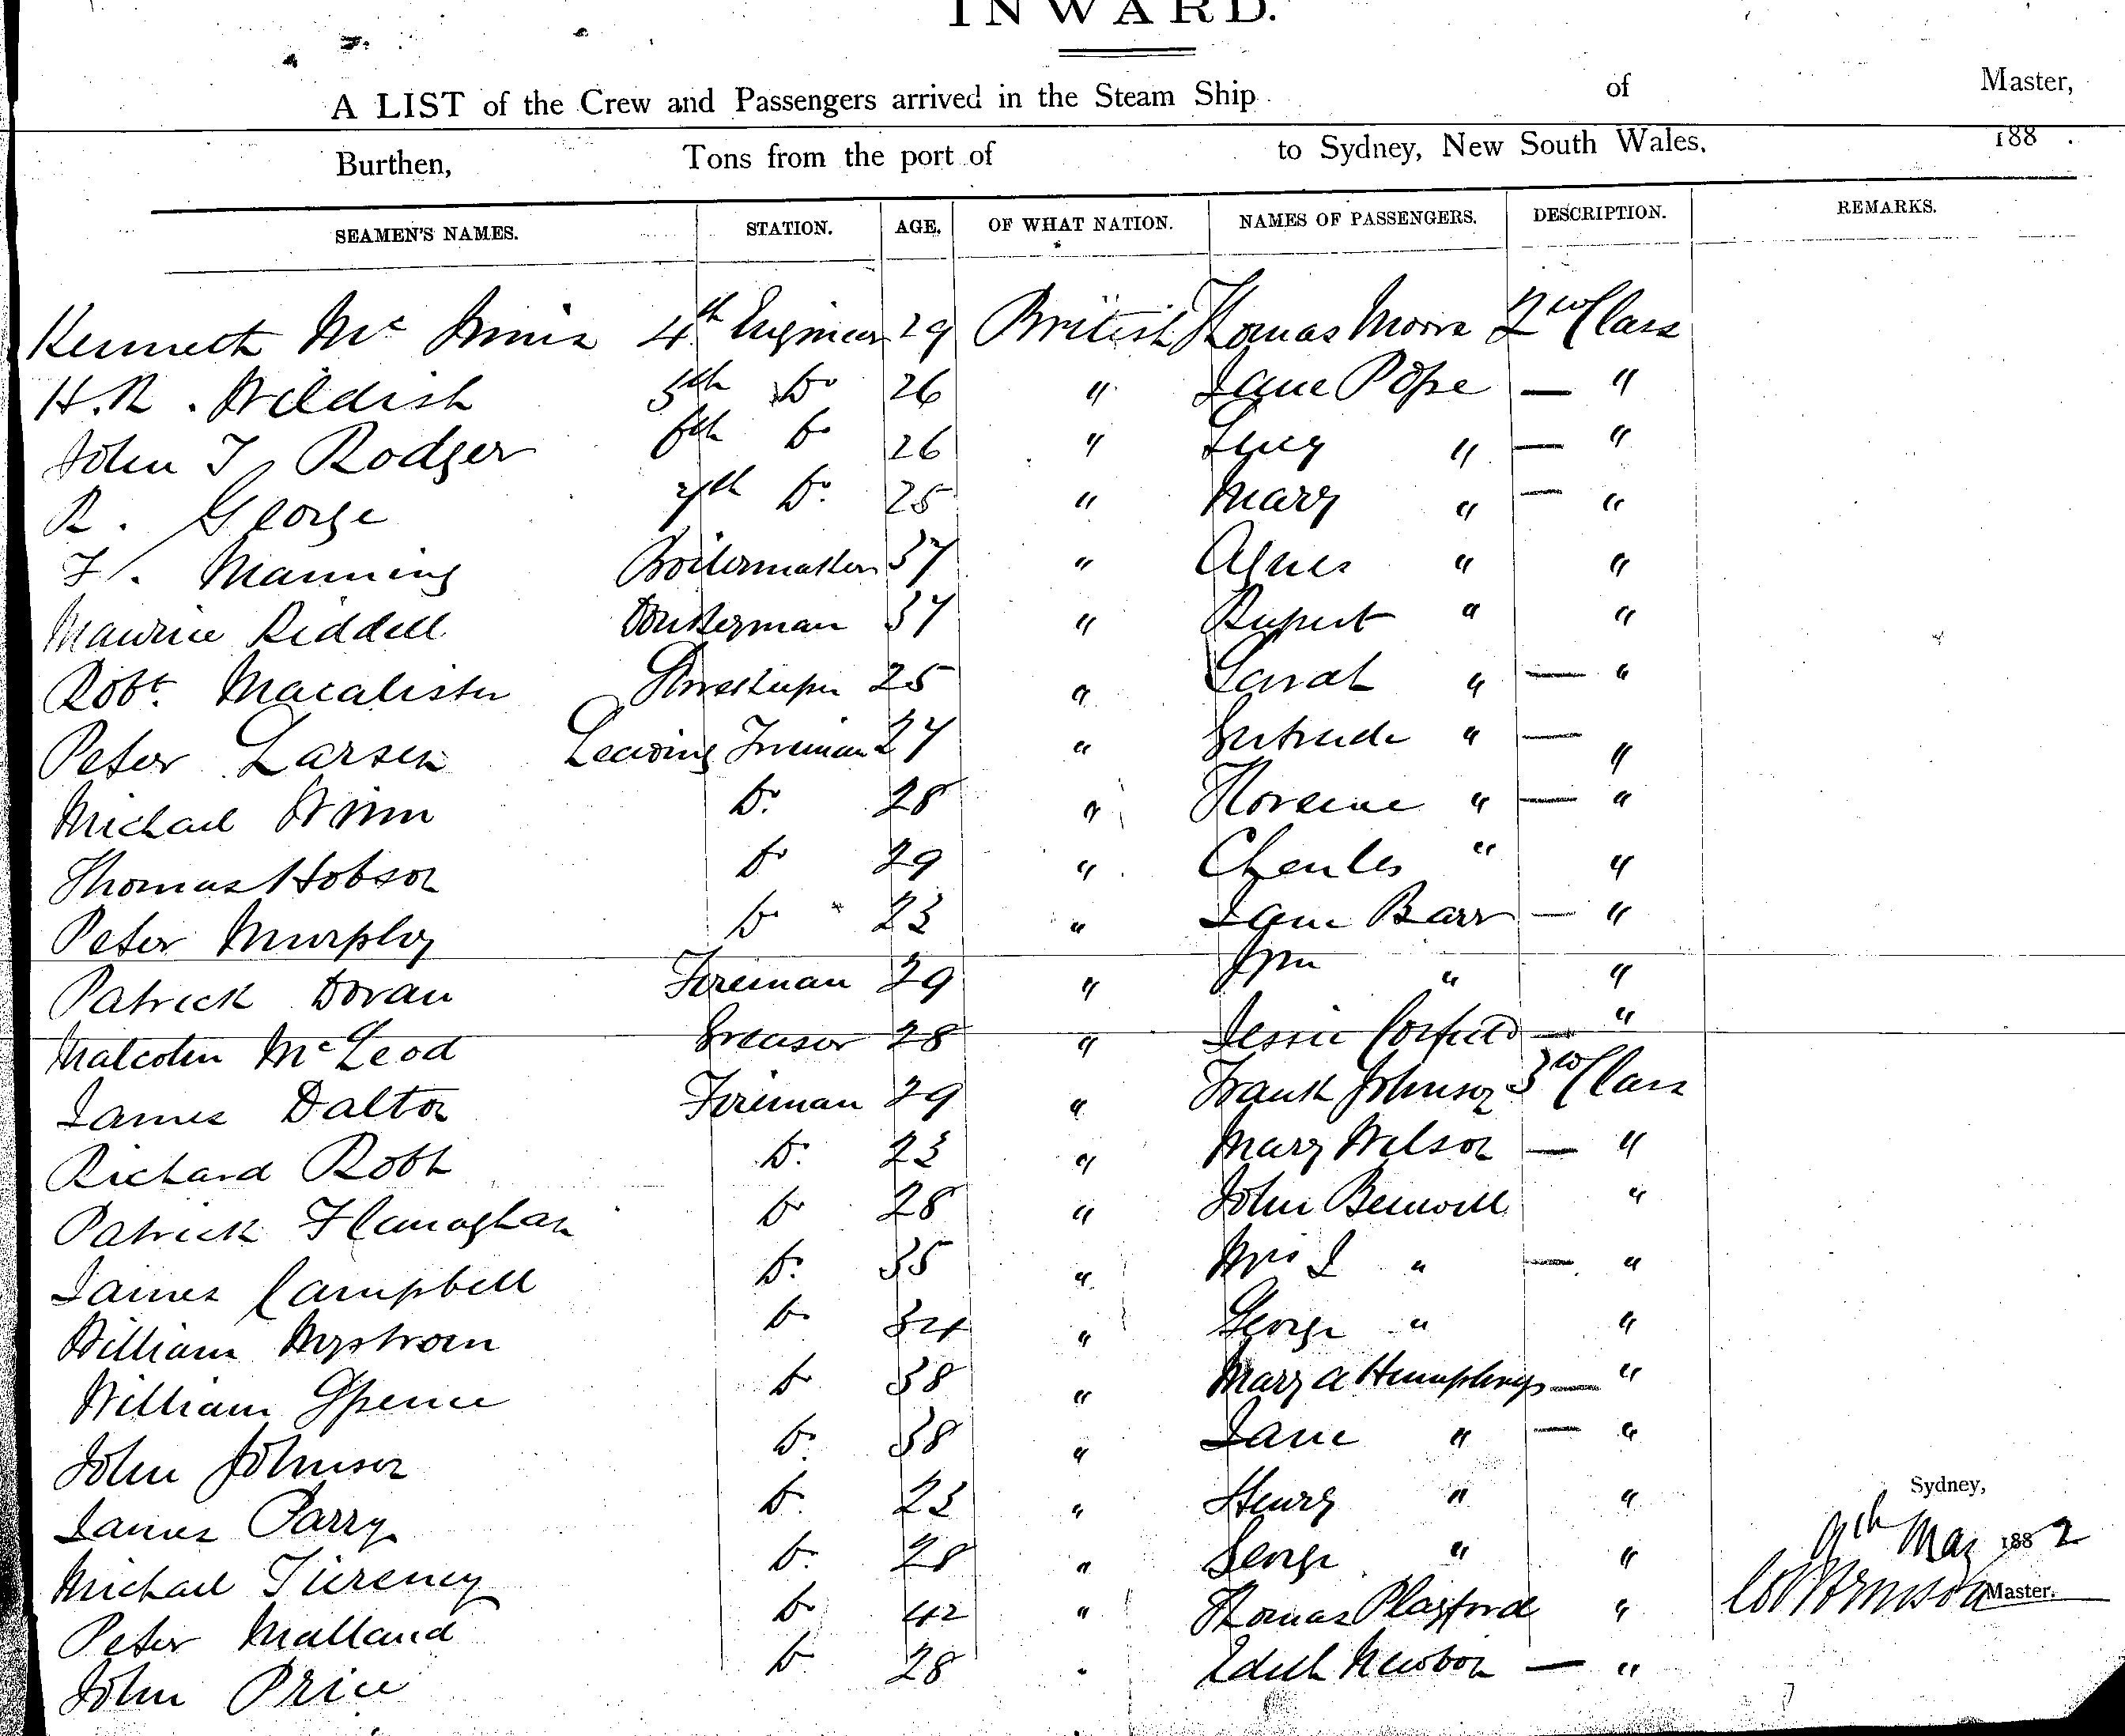 INWARD.
A LIST of the Crew and Passengers arrived in the Steam Ship of Master,
Burthen, Tons from the port of to Sydney, New South Wales, 188 .
SEAMEN'S NAMES. STATION. AGE. OF WHAT NATION. NAMES OF PASSENGERS. DESCRIPTION. REMARKS.
Kenneth Mc Innis 4th Engineer 29 British Thomas Moore 2nd Class
H.R. Wildish 5th Do 26 " Jane Pope — "
John T. Rodger 6th Do 26 " Lucy " — "
R. George 7th Do 25 " Mary " — "
F. Manning Boilermaker 37 " Agnes " "
Maurice Riddell Donkeyman 37 " Rupert " "
Robt. Macalister Storekeeper 25 " Sarah " — "
Peter Larsen Leading Fireman 27 " Gertrude " — "
Michael Winn Do 28 " Florence " — "
Thomas Hobson Do 29 " Charles " "
Peter Murphy Do 23 " Jane Barr — "
Patrick Doran Fireman 29 " Jno " "
Malcolm McLeod Greaser 28 " Jessie Corfield — "
James Dalton Fireman 29 " Frank Johnson 3rd Class
Richard Robb Do 23 " Mary Wilson — "
Patrick Flanaghan Do 28 " John Benwell "
James Campbell Do 35 " Mrs J " — "
William Nystrom Do 34 " George " "
William Spence Do 38 " Mary A Humphreys — "
John Johnson Do 38 " Jane " — "
James Parry Do 23 " Henry " "
Michael Tiereney Do 28 " George " "
Peter Malland Do 42 " Thomas Playford "
John Price Do 28 " Edith Newbon — "
Sydney,
9th May 1882
Master.